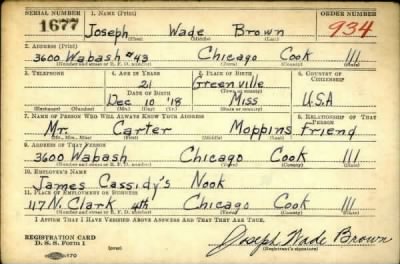 SERIAL NUMBER 1. NAME (Print) ORDER NUMBER
1677 Joseph Wade Brown 934
(First) (Middle) (Last)
2. ADDRESS (Print)
3600 Wabash #43 Chicago Cook Ill
(Number and street or R. F. D. number) (Town) (County) (State)
3. TELEPHONE 4. AGE IN YEARS 5. PLACE OF BIRTH 6. COUNTRY OF CITIZENSHIP
21 Greenville
DATE OF BIRTH (Town or county)
Dec 10 '18 Miss U.S.A
(Exchange) (Number) (Mo.) (Day) (Yr.) (State or country)
7. NAME OF PERSON WHO WILL ALWAYS KNOW YOUR ADDRESS 8. RELATIONSHIP OF THAT PERSON
Mr. Carter Moppins friend
(Mr., Mrs., Miss) (First) (Middle) (Last)
9. ADDRESS OF THAT PERSON
3600 Wabash Chicago Cook Ill
(Number and street or R. F. D. number) (Town) (County) (State)
10. EMPLOYER'S NAME
James Cassidy's Nook
11. PLACE OF EMPLOYMENT OR BUSINESS
117 N. Clark 4th Chicago Cook Ill
(Number and street or R. F. D. number) (Town) (County) (State)
I AFFIRM THAT I HAVE VERIFIED ABOVE ANSWERS AND THAT THEY ARE TRUE.
REGISTRATION CARD
D. S. S. FORM 1 (over) Joseph Wade Brown
(Registrant's signature)